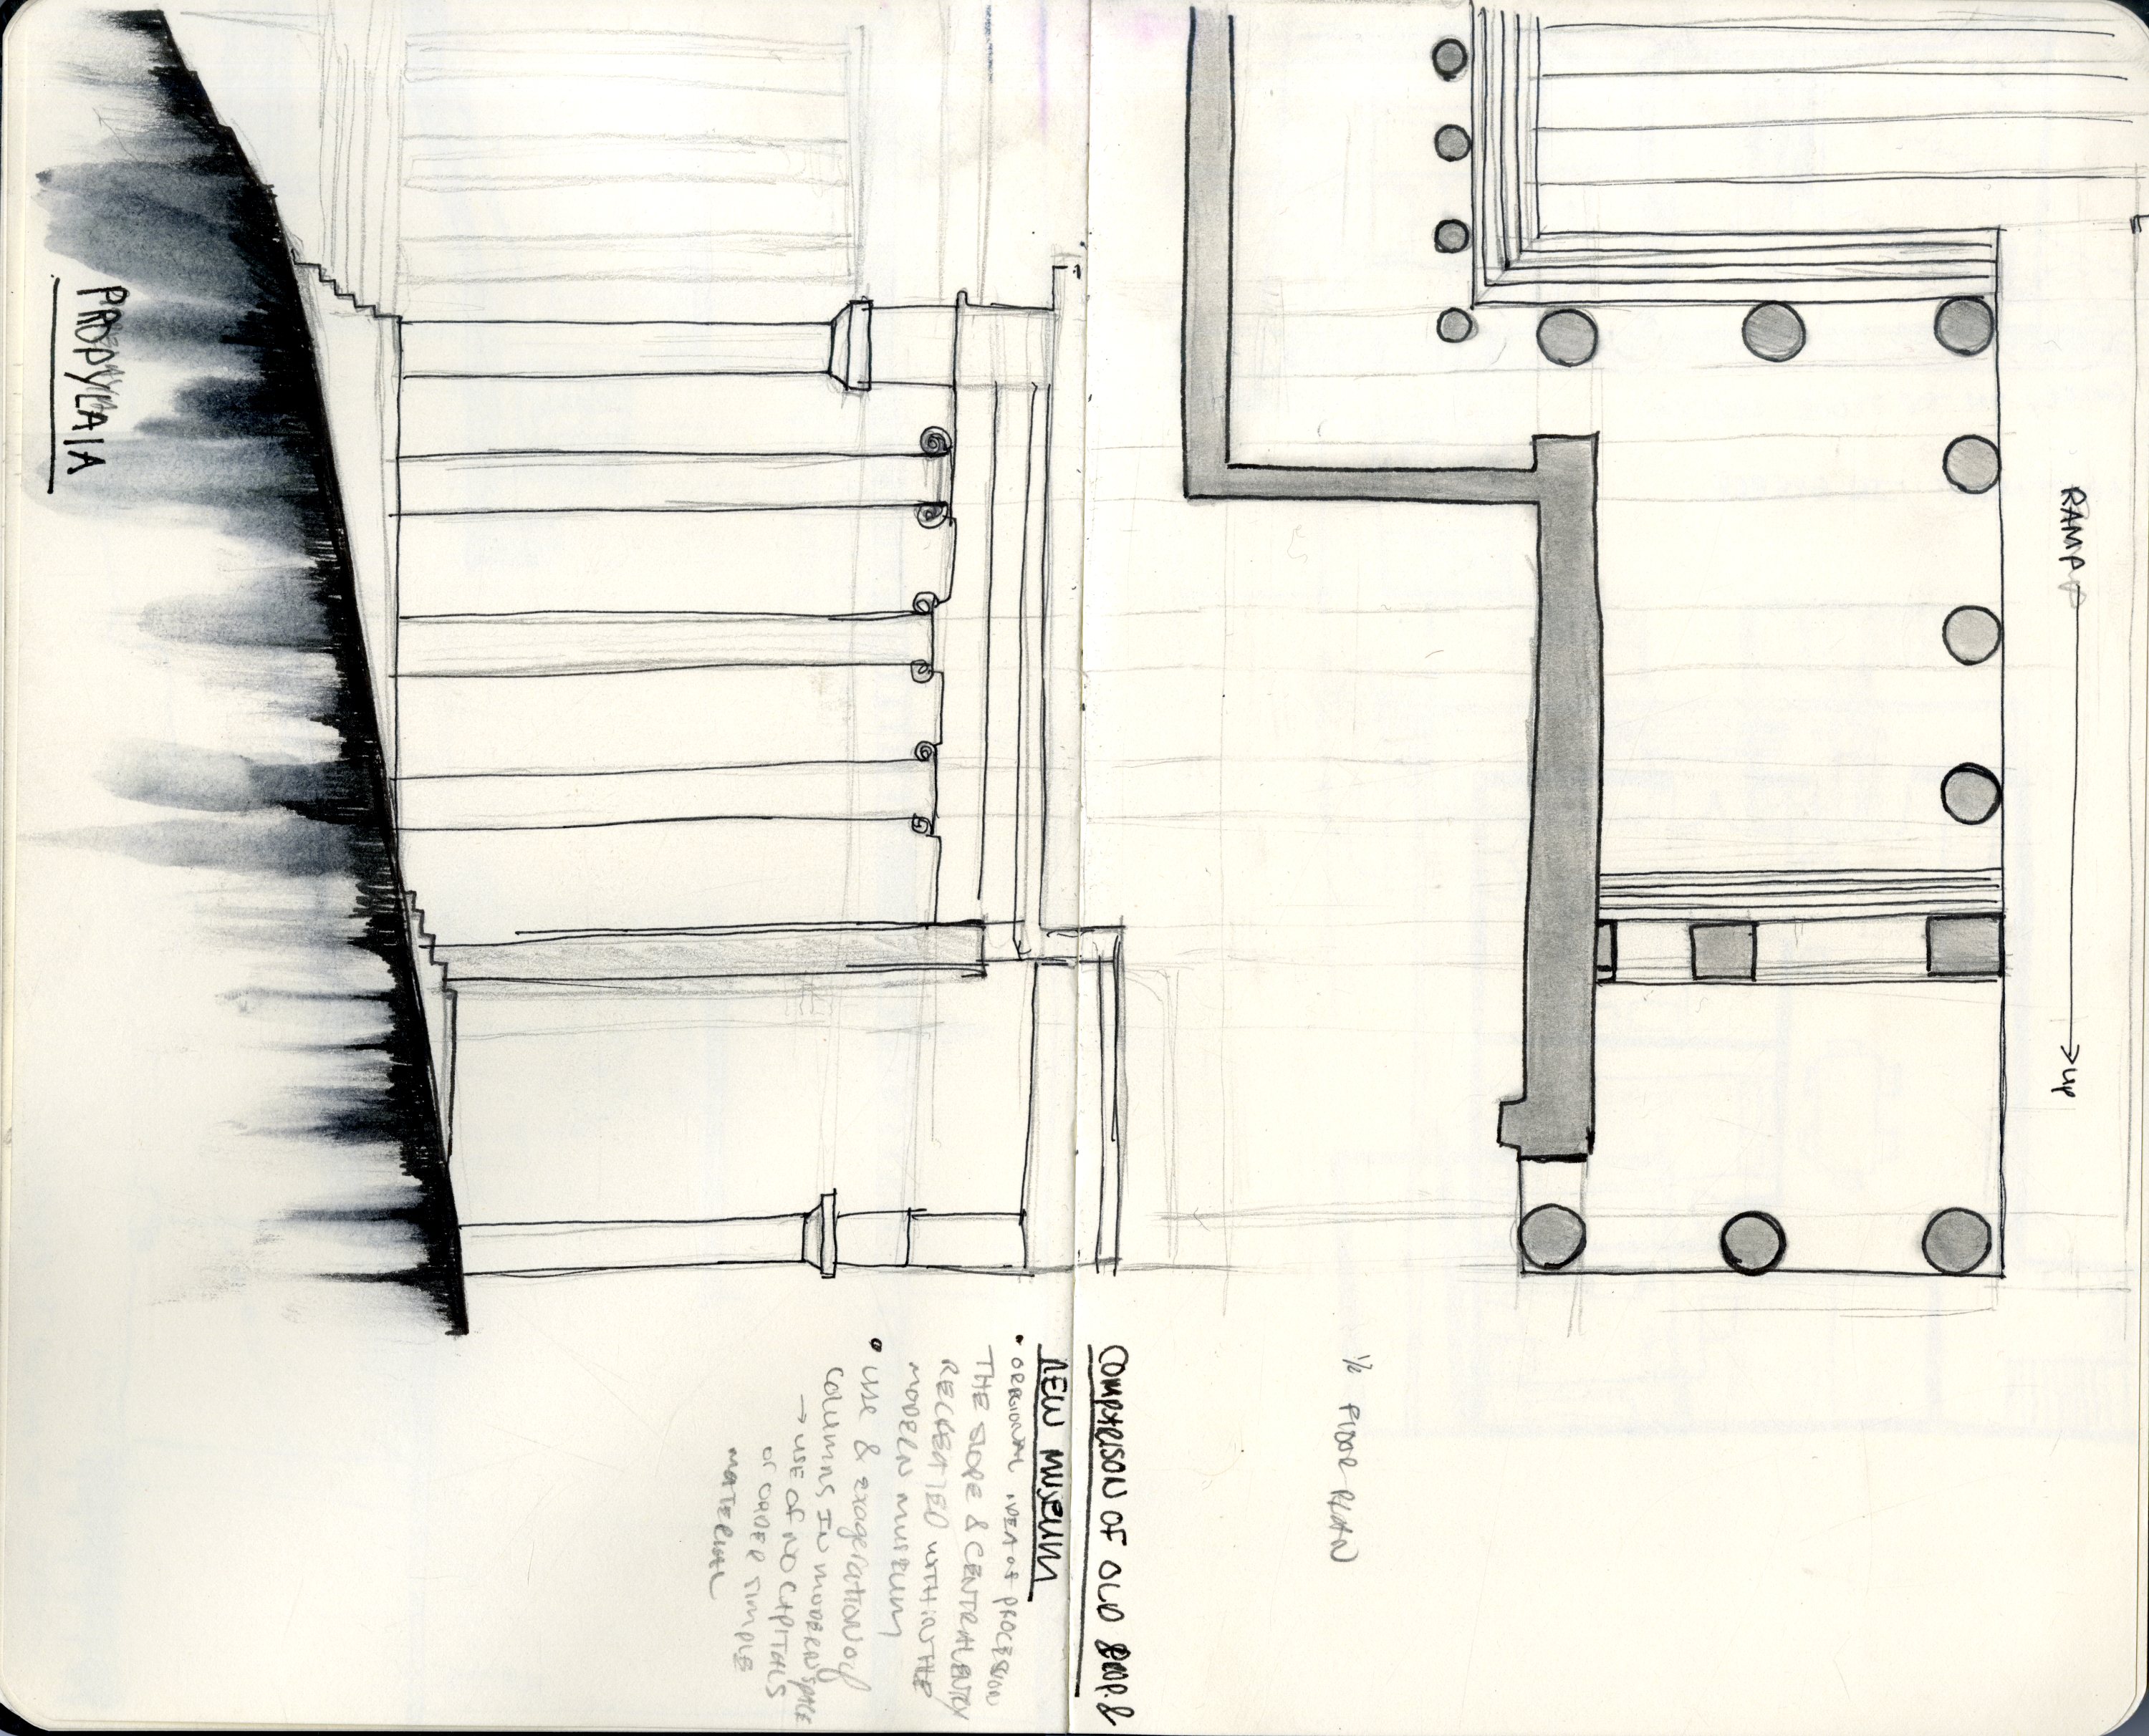 RAMP
UP
1/2 FLOOR PLAN
COMPARISON OF OLD PROP. &
NEW MUSEUM
• ORIGIONAL IDEA OF PROCESSION
THE SLOPE & CENTRAL ENTRY
RECREATED WITHIN THE
MODERN MUSEUM
• USE & EXAGERATION OF
COLUMNS IN MODERN SPACE
→ USE OF NO CAPITALS
OR ORDER SIMPLE
MATERIAL
PROPYLAIA